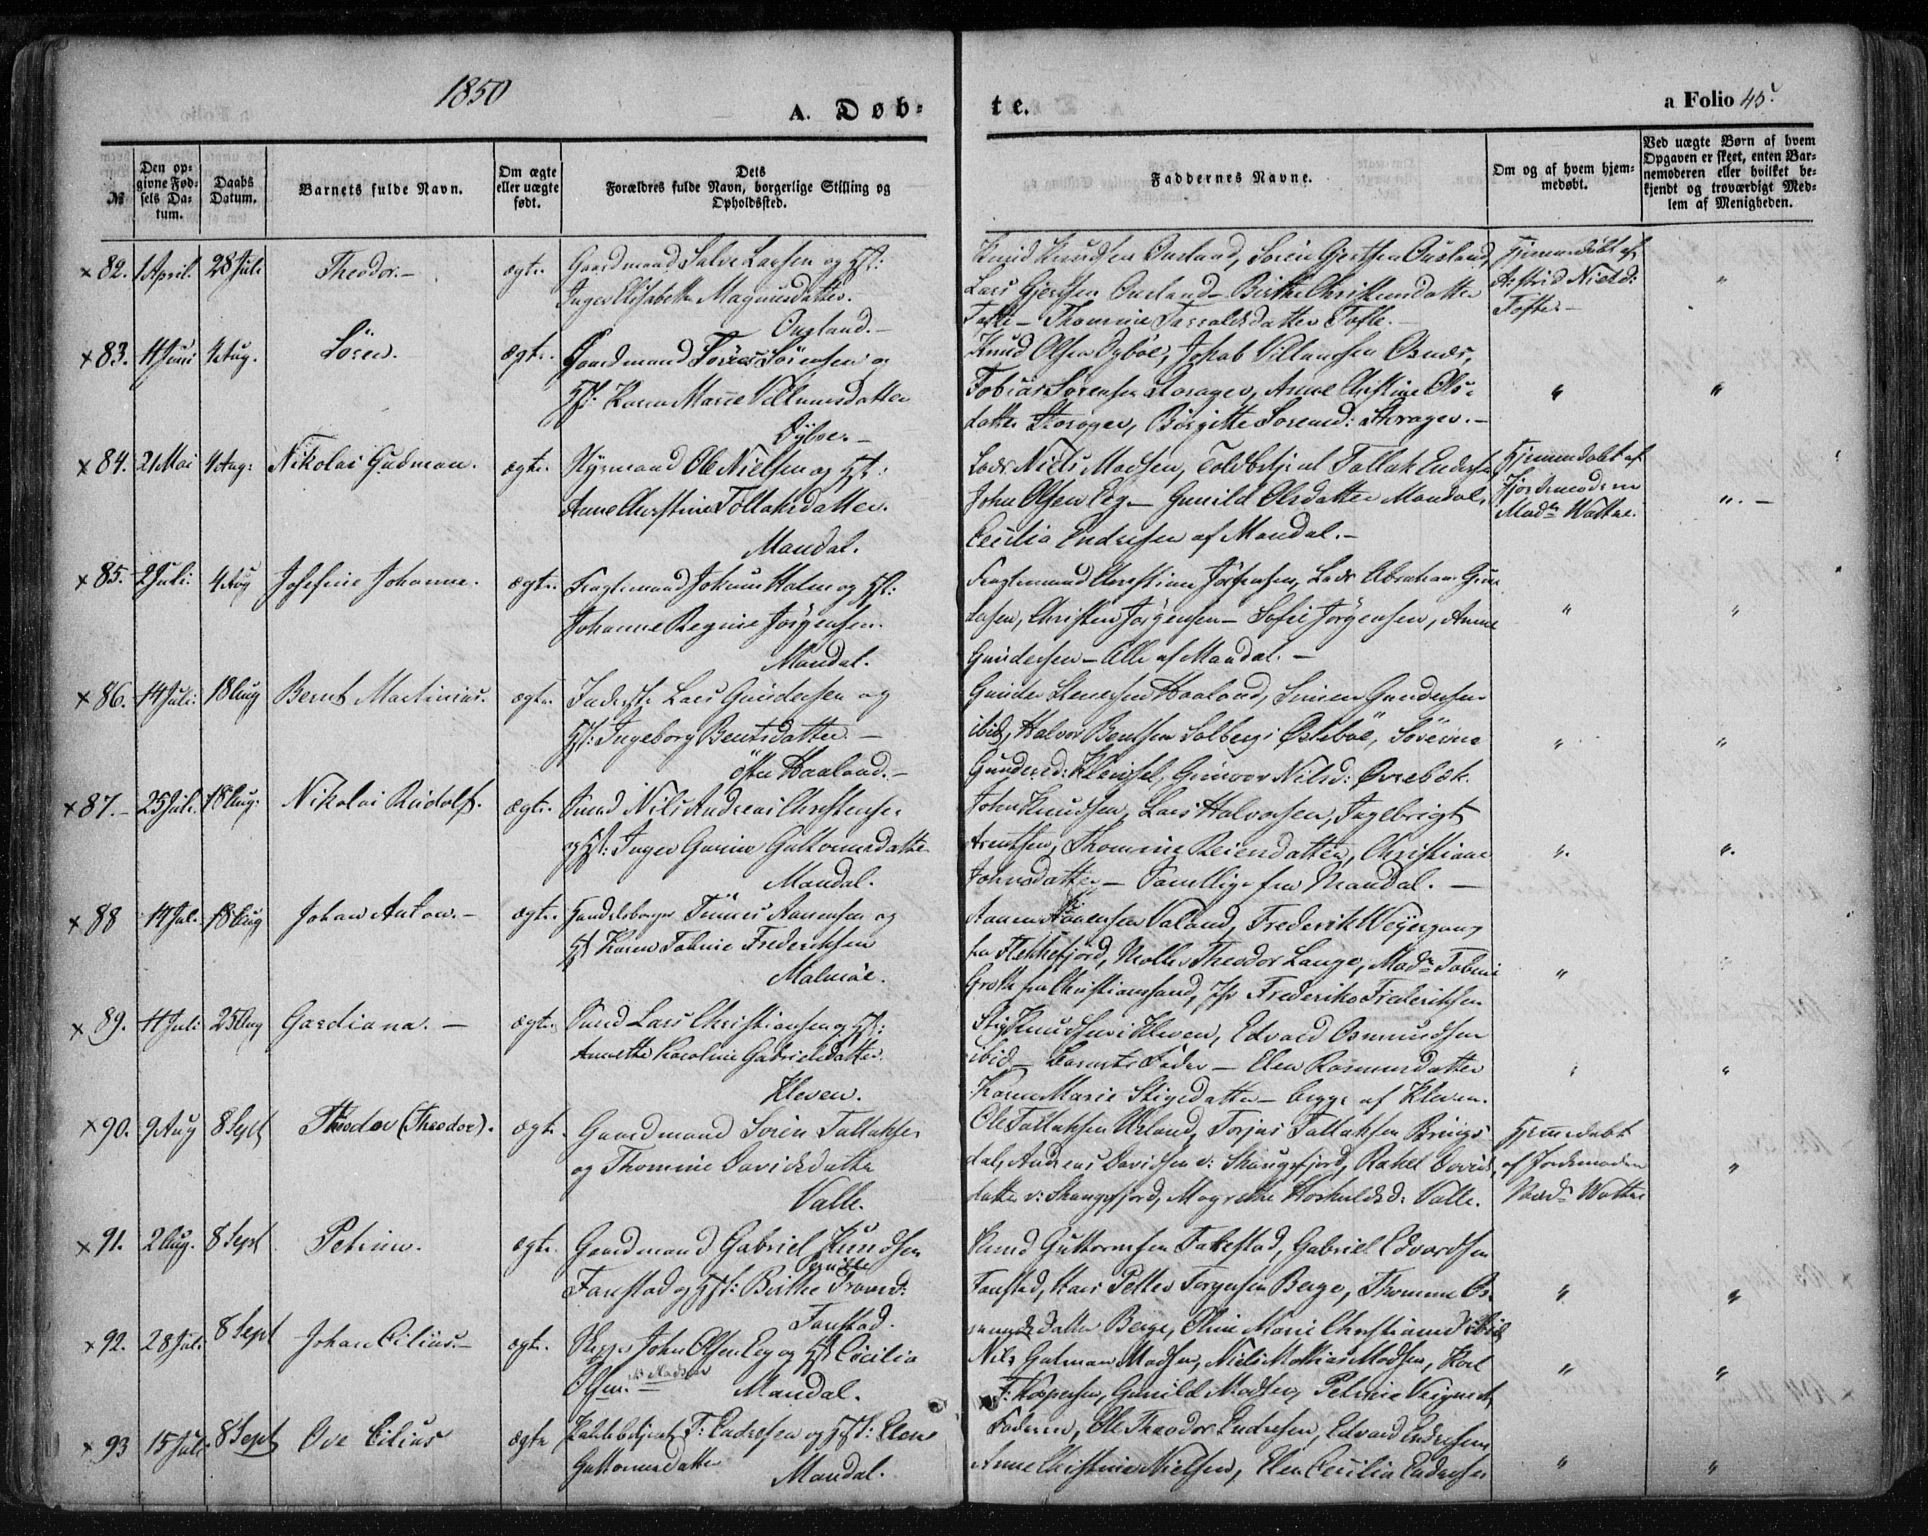 1850
A. Døb-
te.
a Folio 45.
№
Den op-
givne Fød-
sels Da-
tum.
Daabs
Datum.
Barnets fulde Navn.
Om ægte
eller uægte
født.
Dets
Forældres fulde Navn, borgerlige Stilling og
Opholdssted.
Faddernes Navne.
Om og af hvem hjem-
medøbt.
Ved uægte Børn af hvem
Opgaven er skeet, enten Bar-
nemoderen eller hvilket be-
kjendt og troværdigt Med-
lem af Menigheden.
×82. 1 April. 28 Juli Theodor.— ægte. Gaardmand Salve Larsen og Hst:
Inger Elisabeth Magnusdatter.
Ousland.—
Knud Knudsen Ousland, Sören Gjertsen Ousland,
Lars Gjertsen Ousland— Birthe Christensdatter
Tofte— Thomine Tarvaldsdatter Tofte.—
Hjemmedøbt af
Astrid Nielsd:
Tofte.—
"
×83. 11 Juni 4 Aug. Sören. ægte. Gaardmand Sören Sörensen og
Hst: Karen Marie Villumsdatter
Oybøe.—
Knud Olsen Oybøe, Jakob Villumsen Osnes,
Tobias Sörensen Storager, Anne Christine Ols-
datter Storager, Birgitte Sörensd: Storager.—
" "
×84. 21 Mai 4 Aug: Nikolai Gudman. ægte. Styrmand Ole Nielsen og Hst:
Anne Christine Tollaksdatter.
Mandal.
Lods Niels Madsen, Toldbetjent Tallak Endresen
John Olsen Eeg— Gunild Olsdatter Mandal,
Cecilia Endresen af Mandal.—
Hjemmedøbt af
Jordemoderen
Madm Wattne.
".—
×85. 2 Juli: 4 Aug Josefine Johanne. ægte. Fragtemand Johan Holm og Hst:
Johanne Regine Jörgensen.
Mandal.
Fragtemand Christian Jörgensen, Lods Abraham Gun-
dersen, Christen Jörgensen— Sofie Jörgensen, Anne
Gundersen— Alle af Mandal.—
" "
×86. 14 Juli: 18 Aug Bernt Martinius. ægte. Inderste Lars Gundersen og
Hst: Ingeborg Bentsdatter.—
östre Haaland.—
Gunder Stenersen Haaland, Simen Gundersen
ibid, Halvor Bentsen Solberg i Østebøe, Sörine
Gundersd: Kleivsel, Gunvor Nilsd: Øvrebøk.
" "
×87.— 25 Juli. 18 Aug: Nikolai Rudolf. ægte. Smed Nils Andreas Christensen
og Hst: Inger Gurine Guttormsdatter
Mandal.
John Knudsen, Lars Halvorsen, Ingebrigt
Arentsen, Thomine Reiersdatter, Christiane
Johnsdatter— Samtlige fra Mandal.—
". ".
×88 14 Jul. 18 Aug Johan Anton.— ægte. Handelsborger Tönnes Aanensen og
Hst Karen Tobine Frederiksen
Malmöe.
Aanen Aanensen Valand, Frederik Weyergang
fra Flekkefjord, Møller Theodor Lange, Madm Tobine
Groth fra Christianssand, Jfr Frederikke Frederiksen
"
×89. 11 Juli 25 Aug Gardiana.— ægte. Smed Lars Christiansen og Hst:
Annette Karoline Gabrielsdatter
Kleven.
Stig Knudsen i Kleven, Edvard Osmundsen
ibid— Barnets Fader— Elen Rasmusdatter
Karen Marie Stigsdatter— begge af Kleven.
" "
×90. 9 Aug 8 Sept Thodor (Theodor). ægte. Gaardmand Sören Tallaksen
og Thomine Davidsdatter
Valle.
Ole Tallaksen Usland, Torjus Tallaksen Brings-
dal, Andreas Davidsen v: Skougsfjord, Rakel Davids-
datter v: Skougsfjord, Magrethe Torkildsd: Valle.
Hjemmedøbt
af Jordemoderen
Madm Wattne
"
×91. 2 Aug. 8 Sept Petrine. ægte. Gaardmand Gabriel Knudsen
Tarestad og Hst: Birthe Tronsd:
Tarestad.
Knud Guttormsen Tarestad, Gabriel Edvardsen
Tarestad, Hans Petter Torgersen Berge, Thomine Os-
mundsdatter Berge, Oline Marie Christiansd ibid
" "
×92. 28 Jul: 8 Sept Johan Cilius.— ægte. Skipper John Olsen Eeg og Hst Cecilia
Olsen.— Mandal.
Nils Gutman Madsen, Niels Mathias Madsen, Karl
F: Kaspersen, Gunild Madsen, Petrine Weignert
" "
×93 15 Juli 8 Sept Ove Cilius ægte Toldbetjent T: Endresen og Hst: Elene
Guttormsdatter
Mandal.
Faderen, Ole Theodor Endresen, Edvard Endresen,
Anne Christine Nielsen, Elen Cecilia Endresen
" "